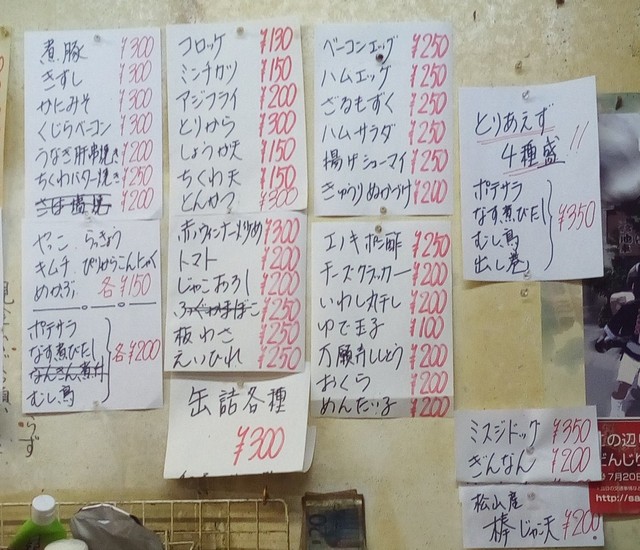 煮豚 ¥300
きずし ¥300
かにみそ ¥300
くじらベーコン ¥300
うなぎ肝串焼き ¥200
ちくわバター焼き ¥250
さば塩焼 ¥200
やっこ らっきょう
キムチ ぴりからこんにゃく
めかぶ 各¥150
ポテサラ
なす煮びたし
なんきん煮付
むし鳥
各¥200
コロッケ ¥130
ミンチカツ ¥150
アジフライ ¥200
とりから ¥300
しょうが天 ¥150
ちくわ天 ¥150
とんかつ ¥300
赤ウィンナー炒め ¥300
トマト ¥200
じゃこおろし ¥200
¥250
板わさ ¥250
えいひれ ¥250
缶詰各種
¥300
ベーコンエッグ ¥250
ハムエッグ ¥250
ざるもずく ¥250
ハムサラダ ¥250
揚げシューマイ ¥250
きゅうりぬかづけ ¥200
エノキポン酢 ¥250
チーズクラッカー ¥200
いわし丸干し ¥200
ゆで玉子 ¥100
万願寺ししとう ¥200
おくら ¥200
めんたい子 ¥200
とりあえず
4種盛!!
ポテサラ
なす煮びたし
むし鳥
出し巻
¥350
ミスジドッグ ¥350
ぎんなん ¥200
松山産
棒じゃこ天 ¥200
の辺り
だんじり
7月20
http://sa